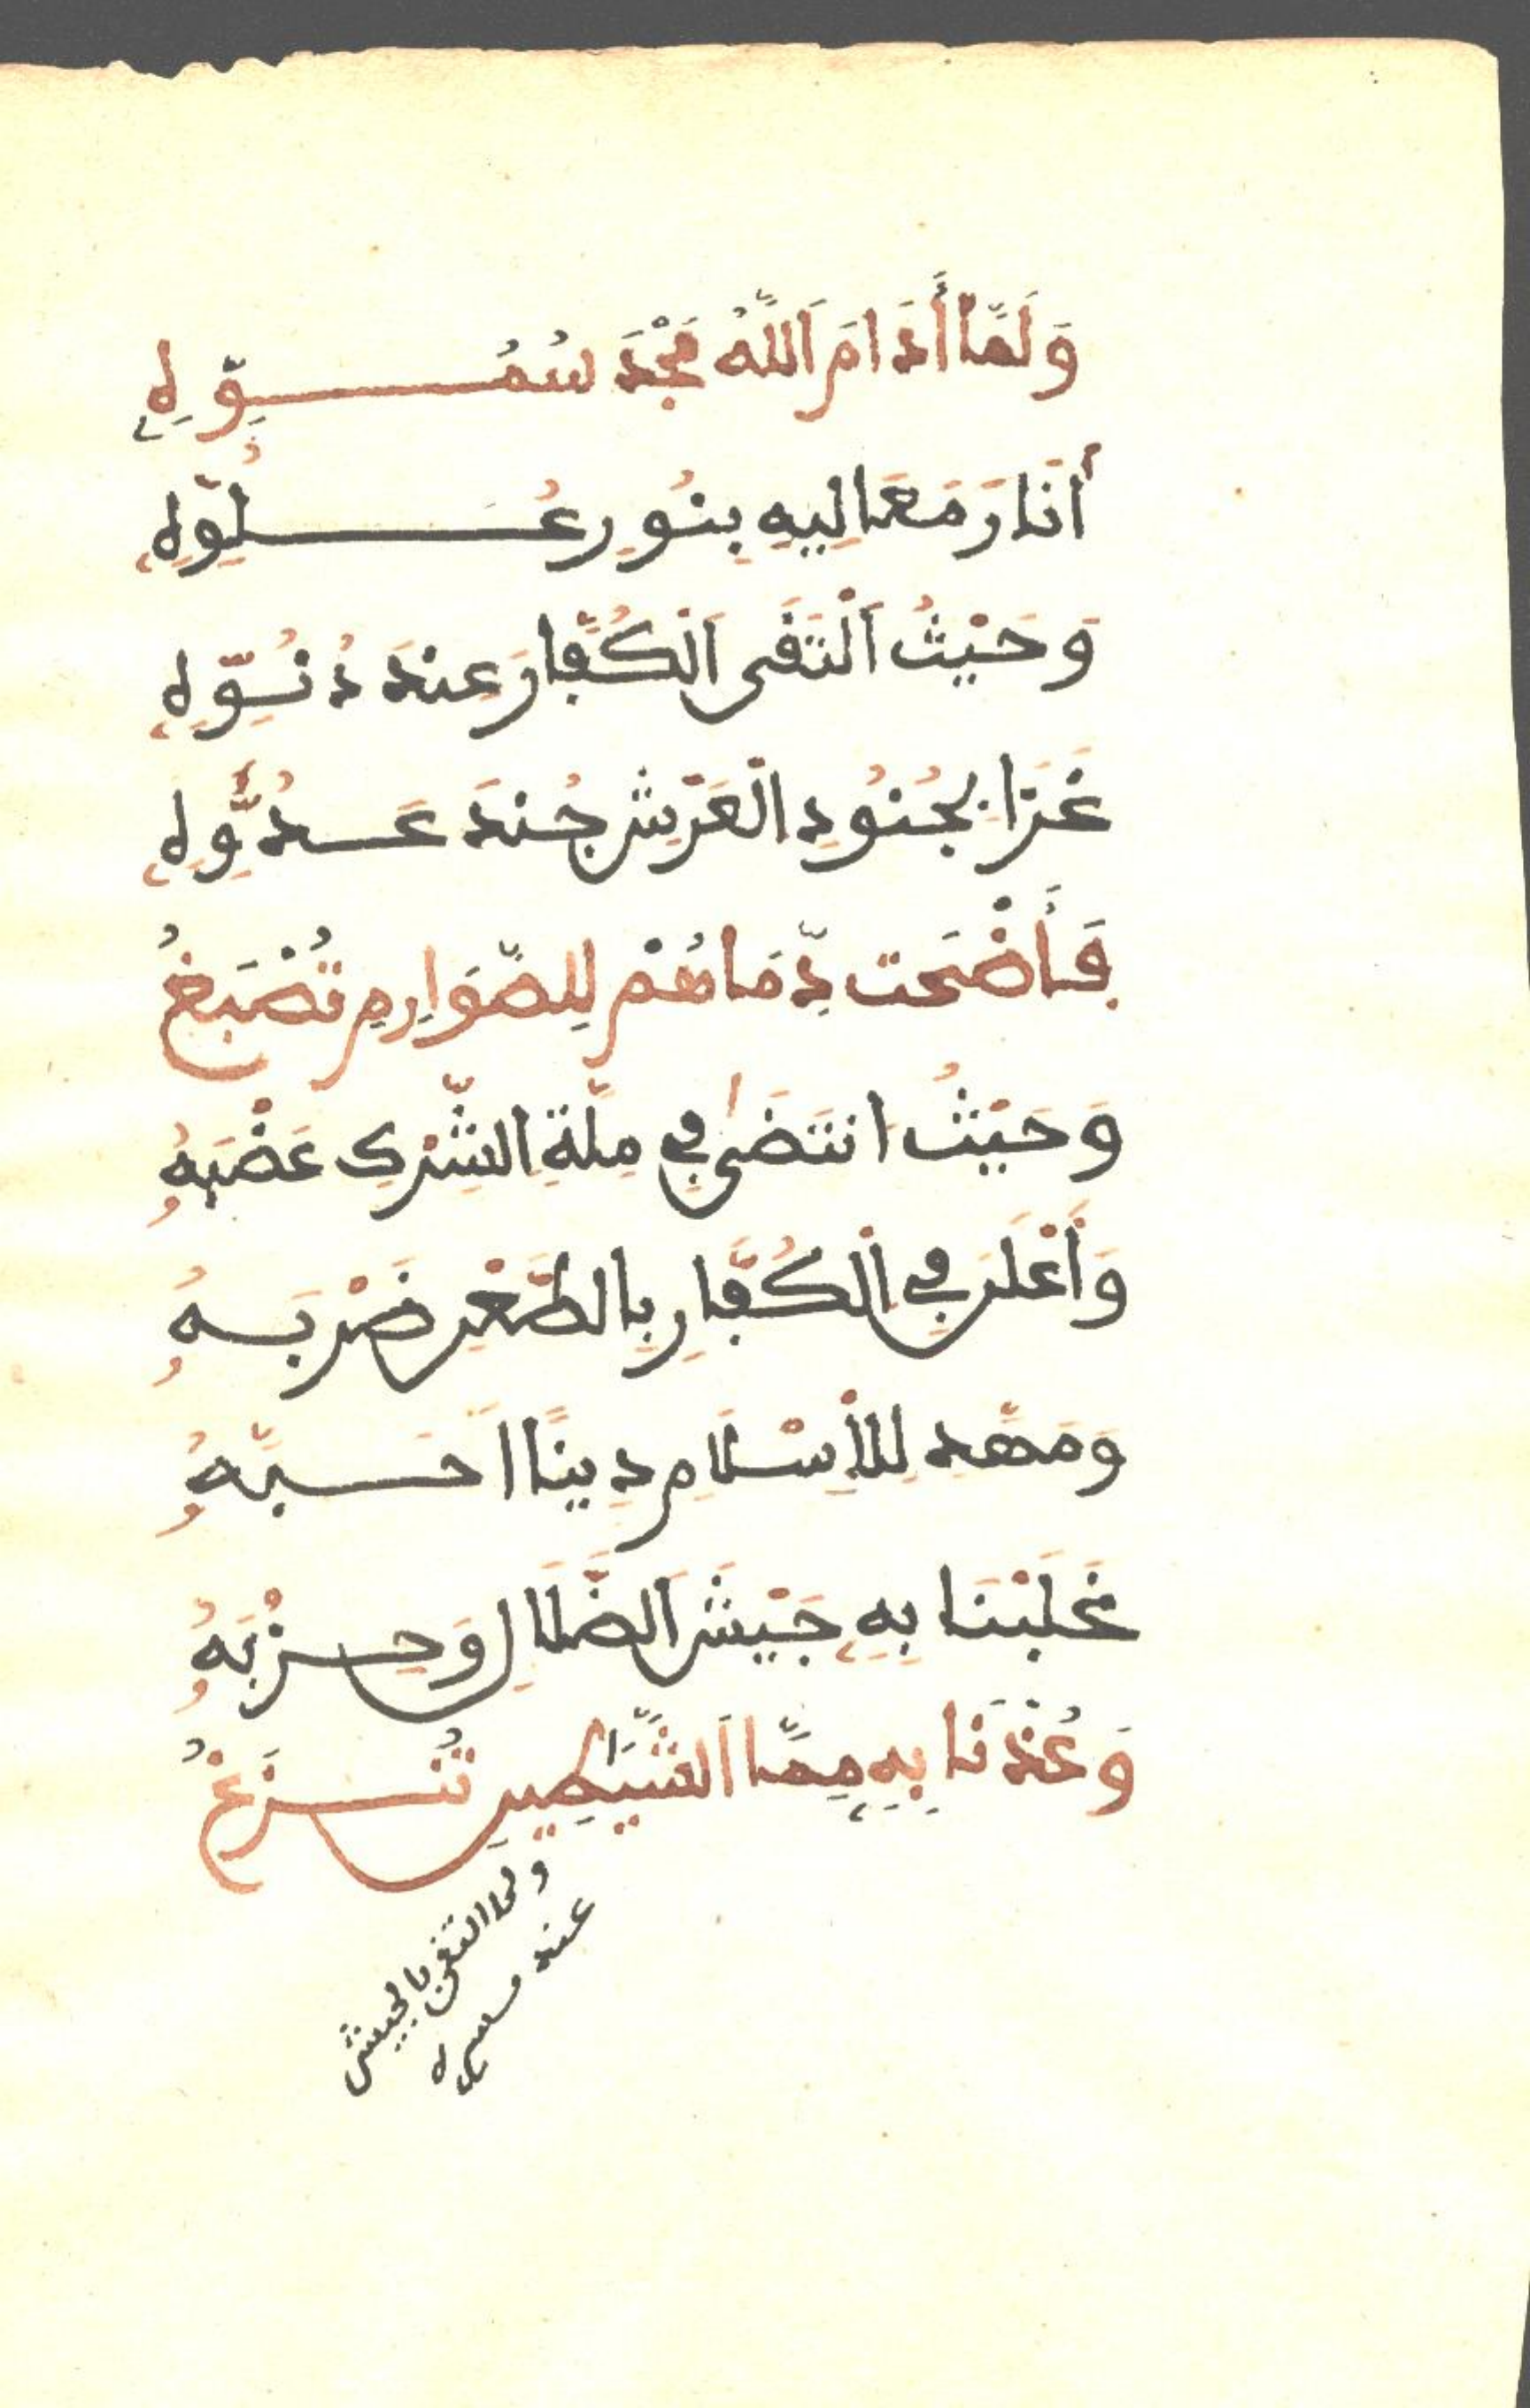 وَلَمَّا أَدَامَ اَللَّهُ مَجْدَ سُمُوِّهِ
أَنَارَ مَعَالِيهِ بِنُورِ عُلُوِّهِ
وَحَيْثُ اَلْتَقَى اَلْكُفَّارَ عِندَ دُنُوِّهِ
غَزَا بِجُنُودِ الْعَرْشِ جُندَ عَدُوِّهِ
فَأَضْحَت دِّمَاهُمْ لِلصَّوَارِمِ تُصْبَغُ
وَحَيْثُ انتَضَى فِي مِلَّةِ الشِّرْكِ عَضْبَهُ
وَأَعْلَنَ فِي اَلْكُفَّارِ بِالطَّعْنِ ضَرْبَهُ
وَمَهَّدَ لِلْأِسْلَامِ دِينًا اَحَبَّهُ
غَلَبْنَا بِهِ جَيْشَ اَلضَّلَالِ وَحِزْبَهُ
وَعُذْنَا بِهِ مِمَّا اَلشَّيَاطِينِ تُنزَغُ
ولما التقى بالجيش
عند